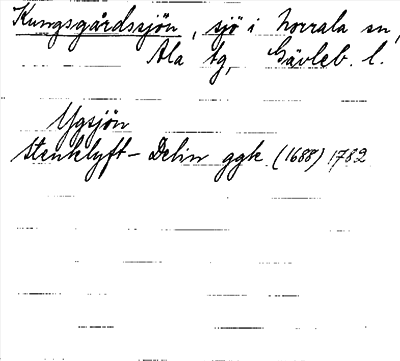 Kungsgårdssjön, sjö i Norrala sn,
Ala tg, Gävleb. l.
Ygsjön
Stenklyft-Delin ggk (1688) 1782